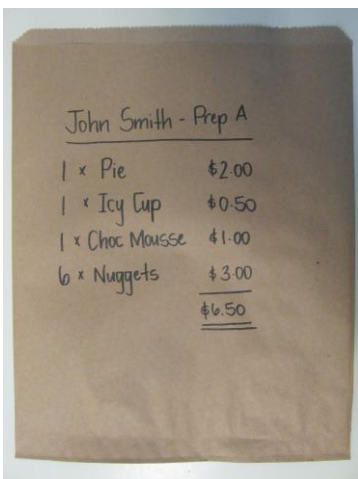 John Smith - Prep A
1 x Pie $2.00
1 x Icy Cup $0.50
1 x Choc Mousse $1.00
6 x Nuggets $3.00
$6.50